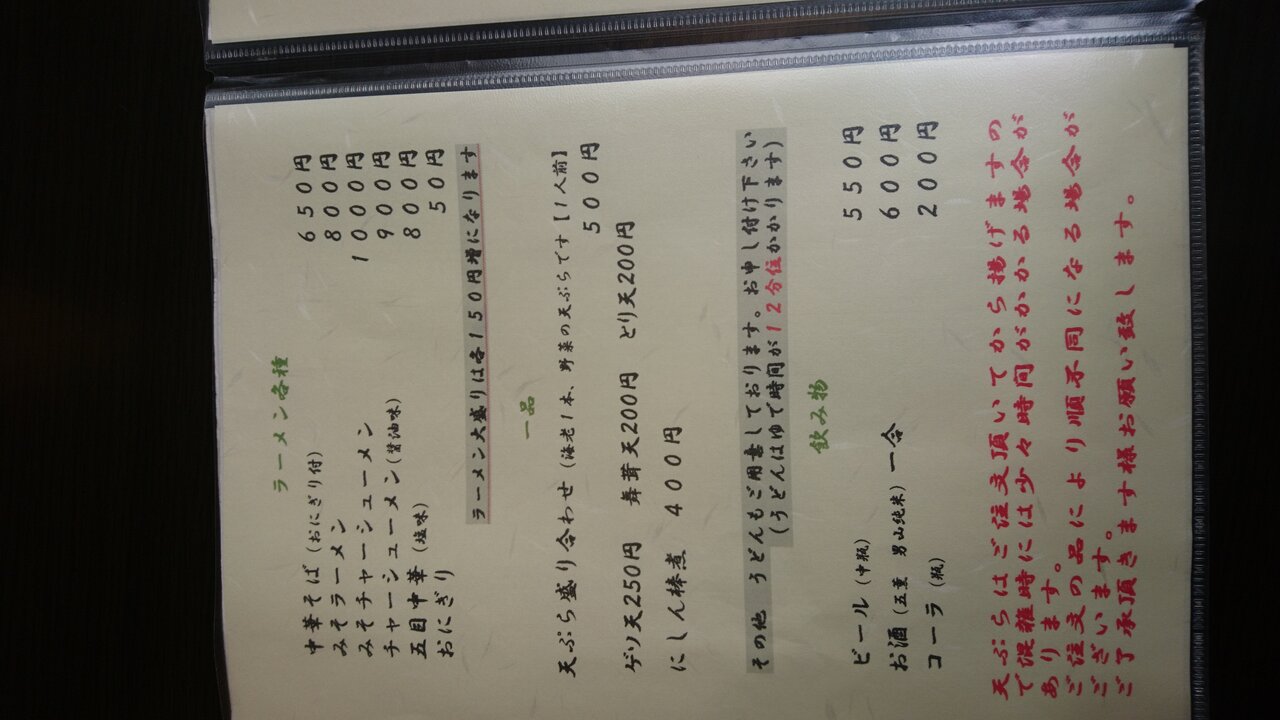 ラーメン各種
中華そば(おにぎり付) 650円
みそラーメン 800円
みそチャーシューメン 1000円
チャーシューメン(醤油味) 900円
五目中華(塩味) 800円
おにぎり 50円
ラーメン大盛りは各150円増になります
一品
天ぷら盛り合わせ(海老1本、野菜の天ぷらです【1人前】
500円
ゲソ天250円 舞茸天200円 とり天200円
にしん棒煮 400円
その他 うどんもご用意しております。お申し付け下さい
(うどんはゆで時間が12分位かかります)
飲み物
ビール(中瓶) 550円
お酒(五葉 男山純米)一合 600円
コーラ(瓶) 200円
天ぷらはご注文頂いてから揚げますの
で混雑時には少々時間がかかる場合が
あります。
ご注文の品により順不同になる場合が
ございます。
ご了承頂きます様お願い致します。